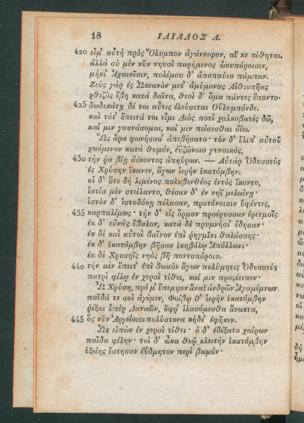 18 ΙΛΙΑΔΟΣ Α.
420 εἶμ' αὐτὴ πρὸς Ὄλυμπον ἀγάννιφον, αἴ κε πίθηται.
ἀλλὰ σὺ μὲν νῦν νηυσὶ παρήμενος ὠκυπόροισιν,
μήνι' Ἀχαιοῖσιν, πολέμου δ' ἀποπαύεο πάμπαν.
Ζεὺς γὰρ ἐς Ὠκεανὸν μετ' ἀμύμονας Αἰθιοπῆας
χθιζὸς ἔβη κατὰ δαῖτα, θεοὶ δ' ἅμα πάντες ἕποντο·
425 δωδεκάτῃ δέ τοι αὖτις ἐλεύσεται Οὔλυμπόνδε.
καὶ τότ' ἔπειτά τοι εἶμι Διὸς ποτὶ χαλκοβατὲς δῶ,
καί μιν γουνάσομαι, καί μιν πείσεσθαι ὀΐω.
Ὣς ἄρα φωνήσασ' ἀπεβήσατο· τὸν δ' ἔλιπ' αὐτοῦ
χωόμενον κατὰ θυμὸν, ἐϋζώνοιο γυναικὸς,
430 τήν ῥα βίῃ ἀέκοντος ἀπηύρων. — Αὐτὰρ Ὀδυσσεὺς
ἐς Χρύσην ἵκανεν, ἄγων ἱερὴν ἑκατόμβην.
οἱ δ' ὅτε δὴ λιμένος πολυβενθέος ἐντὸς ἵκοντο,
ἱστία μὲν στείλαντο, θέσαν δ' ἐν νηῒ μελαίνῃ·
ἱστὸν δ' ἱστοδόκῃ πέλασαν, προτόνοισιν ὑφέντες,
435 καρπαλίμως· τὴν δ' εἰς ὅρμον προέρυσσαν ἐρετμοῖς
ἐκ δ' εὐνὰς ἔβαλον, κατὰ δὲ πρυμνήσι' ἔδησαν·
ἐκ δὲ καὶ αὐτοὶ βαῖνον ἐπὶ ῥηγμῖνι θαλάσσης·
ἐκ δ' ἑκατόμβην βῆσαν ἑκηβόλῳ Ἀπόλλωνι·
ἐκ δὲ Χρυσηῒς νηὸς βῆ ποντοπόροιο.
440 τὴν μὲν ἔπειτ' ἐπὶ βωμὸν ἄγων πολύμητις Ὀδυσσεὺς
πατρὶ φίλῳ ἐν χερσὶ τίθει, καί μιν προσέειπεν·
Ὦ Χρύση, πρό μ' ἔπεμψεν ἄναξ ἀνδρῶν Ἀγαμέμνων
παῖδά τε σοὶ ἀγέμεν, Φοίβῳ θ' ἱερὴν ἑκατόμβην
ῥέξαι ὑπὲρ Δαναῶν, ὄφρ' ἱλασόμεσθα ἄνακτα,
445 ὃς νῦν Ἀργείοισι πολύστονα κήδε' ἐφῆκεν.
Ὣς εἰπὼν ἐν χερσὶ τίθει· ὁ δ' ἐδέξατο χαίρων
παῖδα φίλην· τοὶ δ' ὦκα θεῷ κλειτὴν ἑκατόμβην
ἑξείης ἔστησαν ἐΰδμητον περὶ βωμόν·